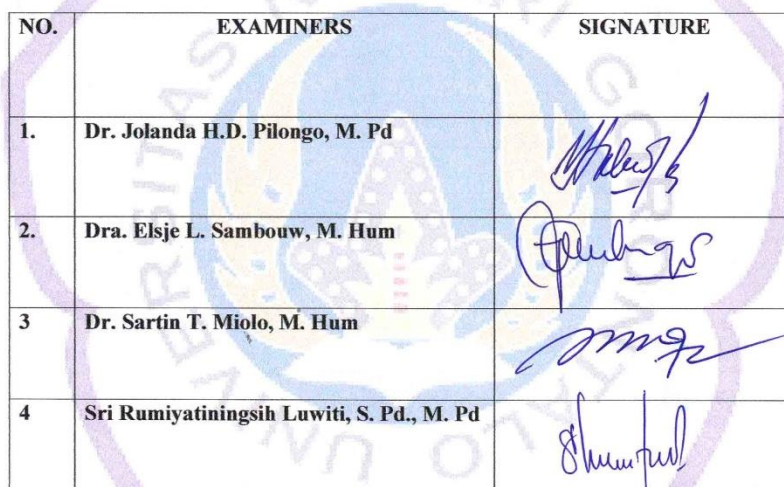 NO. EXAMINERS SIGNATURE
1. Dr. Jolanda H.D. Pilongo, M. Pd
2. Dra. Elsje L. Sambouw, M. Hum
3 Dr. Sartin T. Miolo, M. Hum
4 Sri Rumiyatiningsih Luwiti, S. Pd., M. Pd
UNIVERSITAS NEGERI GORONTALO